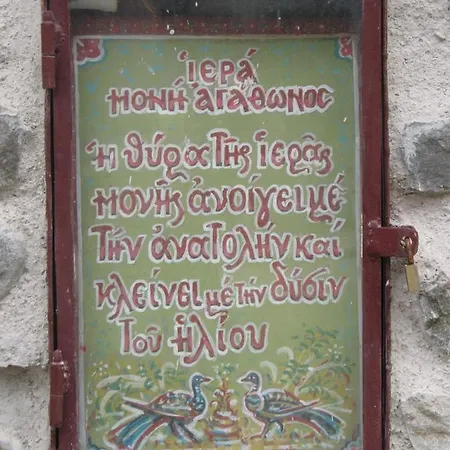 ἱερά
μονή ἀγάθωνος
ἡ θύρα τῆς ἱερᾶς
μονῆς ἀνοίγει μέ
τήν ἀνατολήν καί
κλείνει μέ τήν δύσιν
τοῦ ἡλίου